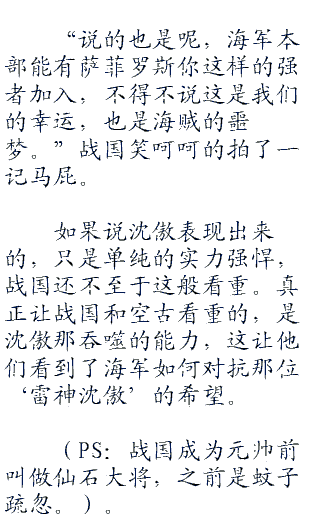 “说的也是呢，海军本
部能有萨菲罗斯你这样的强
者加入，不得不说这是我们
的幸运，也是海贼的噩
梦。”战国笑呵呵的拍了一
记马屁。
如果说沈傲表现出来
的，只是单纯的实力强悍，
战国还不至于这般看重。真
正让战国和空古看重的，是
沈傲那吞噬的能力，这让他
们看到了海军如何对抗那位
‘雷神沈傲’的希望。
（PS：战国成为元帅前
叫做仙石大将，之前是蚊子
疏忽。）。